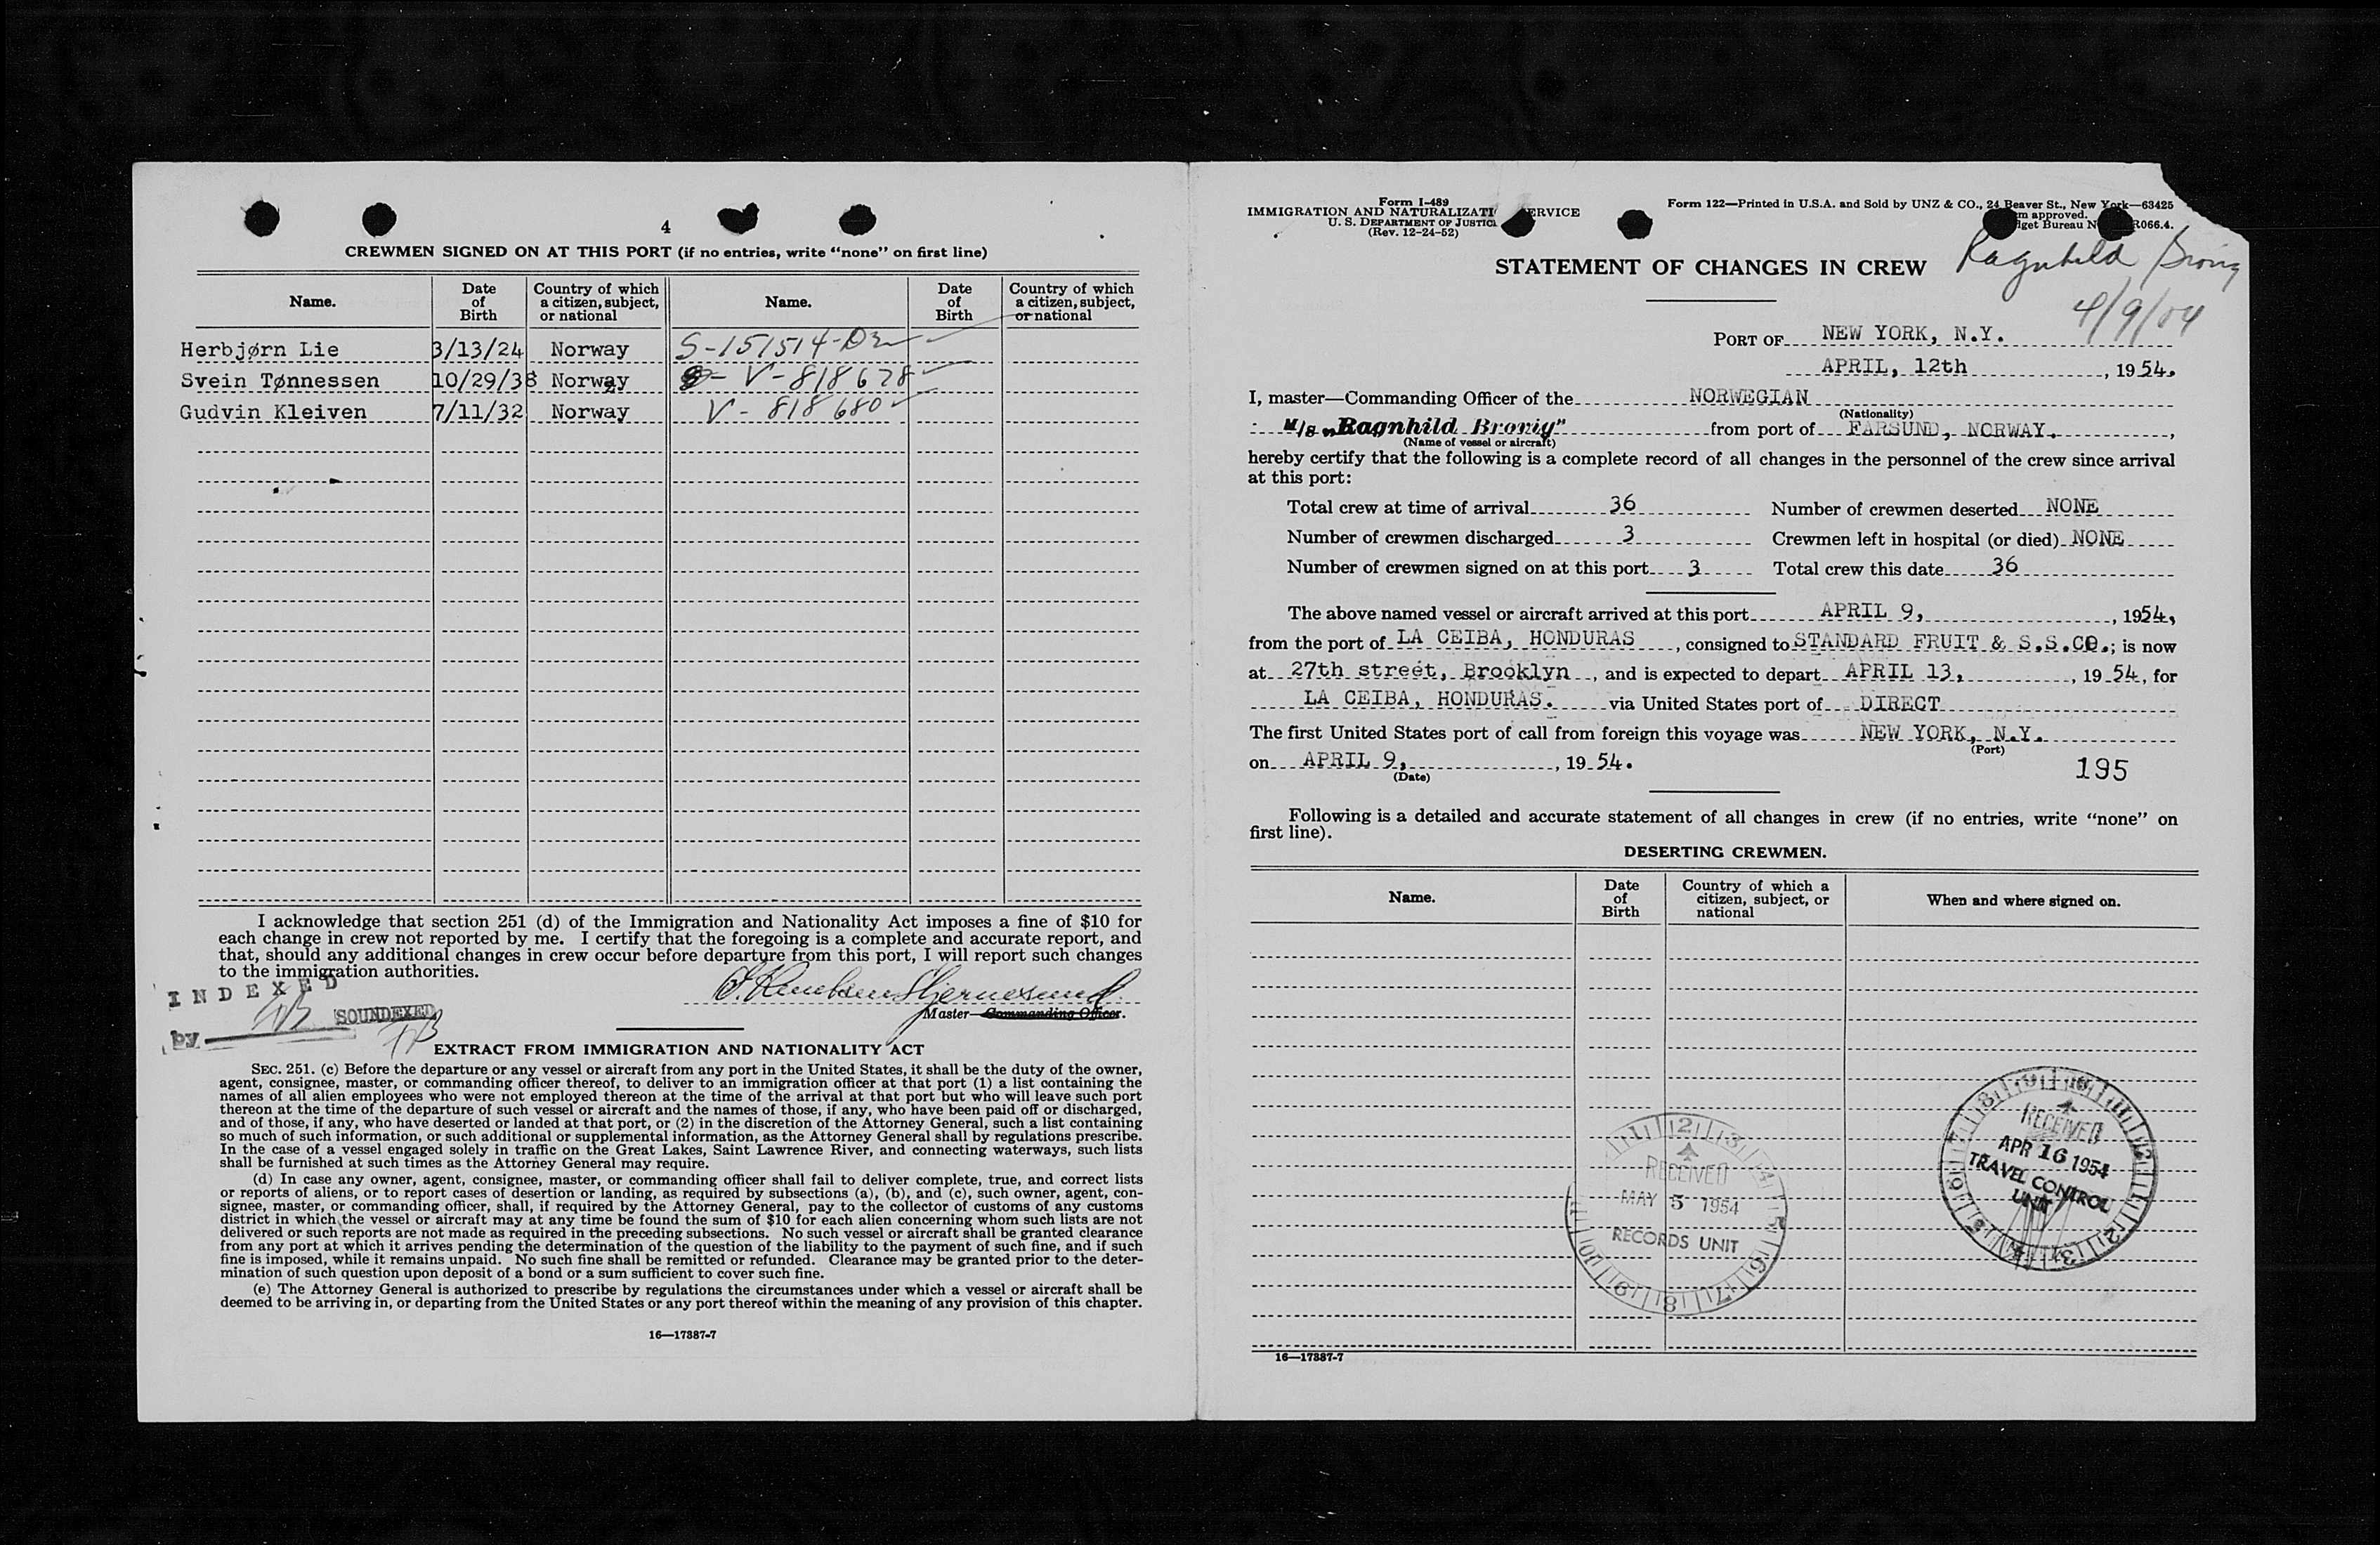 4
CREWMEN SIGNED ON AT THIS PORT (if no entries, write “none” on first line)
Name. Date of Birth Country of which a citizen, subject, or national Name. Date of Birth Country of which a citizen, subject, or national
Herbjørn Lie 3/13/24 Norway S-151514
Svein Tønnessen 10/29/38 Norway V-818678
Gudvin Kleiven 7/11/32 Norway V-818680
I acknowledge that section 251 (d) of the Immigration and Nationality Act imposes a fine of $10 for
each change in crew not reported by me. I certify that the foregoing is a complete and accurate report, and
that, should any additional changes in crew occur before departure from this port, I will report such changes
to the immigration authorities.
INDEXED
by
SOUNDEXED
Master—Commanding Officer.
EXTRACT FROM IMMIGRATION AND NATIONALITY ACT
SEC. 251. (c) Before the departure or any vessel or aircraft from any port in the United States, it shall be the duty of the owner,
agent, consignee, master, or commanding officer thereof, to deliver to an immigration officer at that port (1) a list containing the
names of all alien employees who were not employed thereon at the time of the arrival at that port but who will leave such port
thereon at the time of the departure of such vessel or aircraft and the names of those, if any, who have been paid off or discharged,
and of those, if any, who have deserted or landed at that port, or (2) in the discretion of the Attorney General, such a list containing
so much of such information, or such additional or supplemental information, as the Attorney General shall by regulations prescribe.
In the case of a vessel engaged solely in traffic on the Great Lakes, Saint Lawrence River, and connecting waterways, such lists
shall be furnished at such times as the Attorney General may require.
(d) In case any owner, agent, consignee, master, or commanding officer shall fail to deliver complete, true, and correct lists
or reports of aliens, or to report cases of desertion or landing, as required by subsections (a), (b), and (c), such owner, agent, con-
signee, master, or commanding officer, shall, if required by the Attorney General, pay to the collector of customs of any customs
district in which the vessel or aircraft may at any time be found the sum of $10 for each alien concerning whom such lists are not
delivered or such reports are not made as required in the preceding subsections. No such vessel or aircraft shall be granted clearance
from any port at which it arrives pending the determination of the question of the liability to the payment of such fine, and if such
fine is imposed, while it remains unpaid. No such fine shall be remitted or refunded. Clearance may be granted prior to the deter-
mination of such question upon deposit of a bond or a sum sufficient to cover such fine.
(e) The Attorney General is authorized to prescribe by regulations the circumstances under which a vessel or aircraft shall be
deemed to be arriving in, or departing from the United States or any port thereof within the meaning of any provision of this chapter.
16—17887-7
Form I-489
IMMIGRATION AND NATURALIZATI ERVICE
U. S. DEPARTMENT OF JUSTIC
(Rev. 12-24-52)
Form 122—Printed in U.S.A. and Sold by UNZ & CO., 24 Beaver St., New York—63425
m approved.
dget Bureau N R066.4.
STATEMENT OF CHANGES IN CREW
Ragnhild Brovig
4/9/54
PORT OF NEW YORK, N.Y.
APRIL, 12th, 1954.
I, master—Commanding Officer of the NORWEGIAN
(Nationality)
M/S „Ragnhild Brovig” from port of FARSUND, NORWAY.,
(Name of vessel or aircraft)
hereby certify that the following is a complete record of all changes in the personnel of the crew since arrival
at this port:
Total crew at time of arrival 36 Number of crewmen deserted NONE
Number of crewmen discharged 3 Crewmen left in hospital (or died) NONE
Number of crewmen signed on at this port 3 Total crew this date 36
The above named vessel or aircraft arrived at this port APRIL 9, , 1954,
from the port of LA CEIBA, HONDURAS, consigned to STANDARD FRUIT & S.S.CO.; is now
at 27th street, Brooklyn, and is expected to depart APRIL 13, , 19 54, for
LA CEIBA, HONDURAS. via United States port of DIRECT
The first United States port of call from foreign this voyage was NEW YORK, N.Y.
(Port)
on APRIL 9, , 19 54.
(Date)
195
Following is a detailed and accurate statement of all changes in crew (if no entries, write “none” on
first line).
DESERTING CREWMEN.
Name. Date of Birth Country of which a citizen, subject, or national When and where signed on.
RECEIVED
APR 16 1954
TRAVEL CONTROL
UNIT
RECEIVED
MAY 5 1954
RECORDS UNIT
16—17887-7